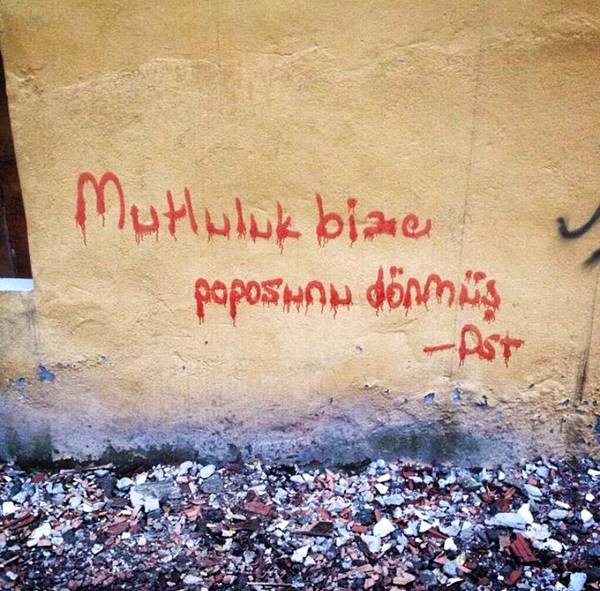 Mutluluk bize
poposunu dönmüş
—Dst